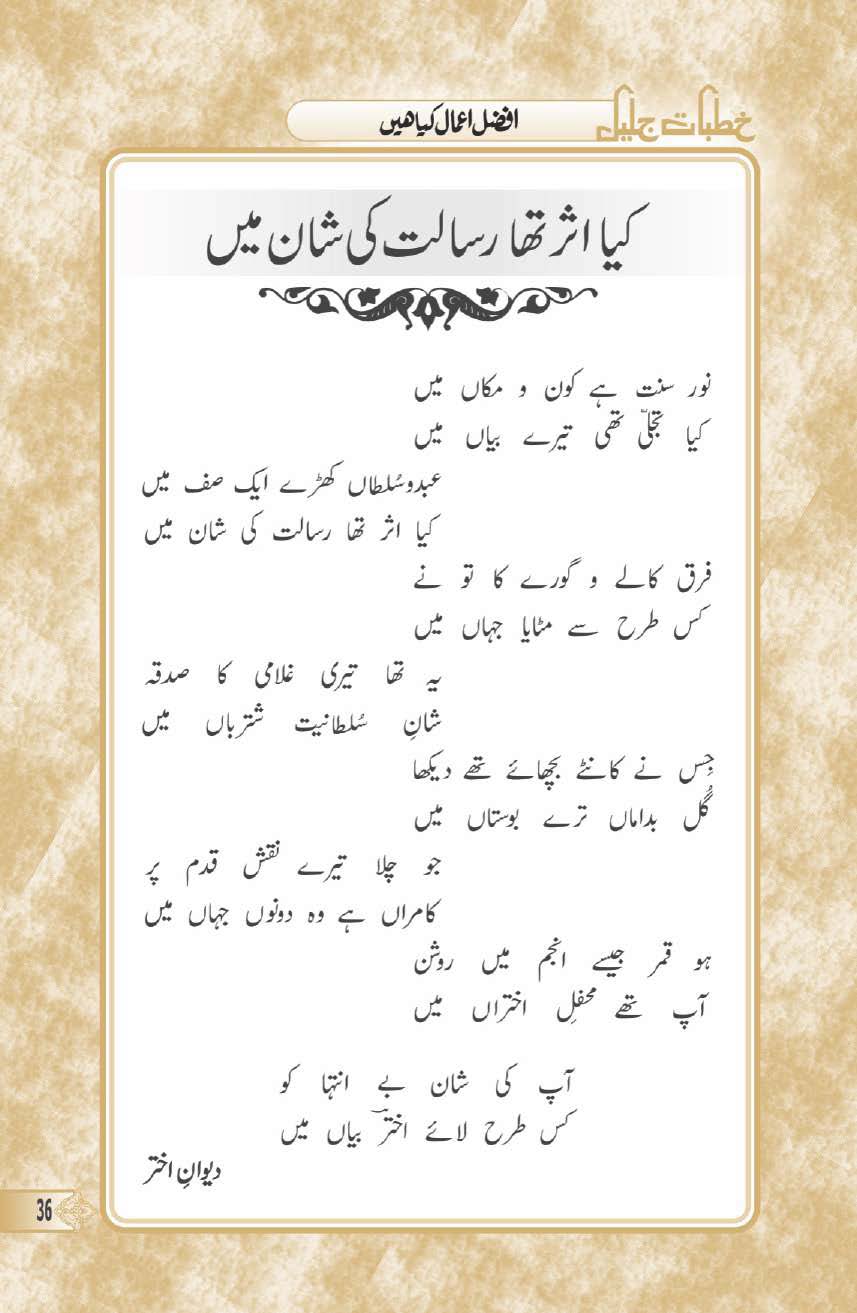 خطبات جلیل
افضل اعمال کیا ہیں
کیا اثر تھا رسالت کی شان میں
نور سنت ہے کون و مکاں میں
کیا تجلّی تھی تیرے بیاں میں
عبدوسُلطاں کھڑے ایک صف میں
کیا اثر تھا رسالت کی شان میں
فرق کالے و گورے کا تو نے
کس طرح سے مٹایا جہاں میں
یہ تھا تیری غلامی کا صدقہ
شانِ سُلطانیت شترباں میں
جِس نے کانٹے بچھائے تھے دیکھا
گُل بداماں ترے بوستاں میں
جو چلا تیرے نقش قدم پر
کامراں ہے وہ دونوں جہاں میں
ہو قمر جیسے انجم میں روشن
آپ تھے محفلِ اختراں میں
آپ کی شان بے انتہا کو
کس طرح لائے اخترؔ بیاں میں
دیوانِ اختر
36